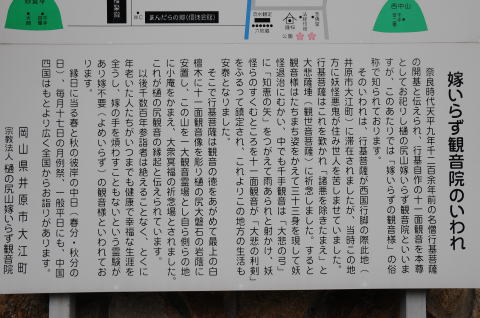 西中山
まんだらの郷(信徒会館)
六地蔵
公園
嫁いらず観音院のいわれ
奈良時代天平九年千二百余年前の名僧行基菩薩
の開基と伝えられ、行基自作の十一面観音を本尊
としてお祀りし樋の尻山嫁いらず観音院といいま
すが、このあたりでは「嫁いらずの観音様」の俗
称で知られております。
そのいわれは、行基菩薩が西国行脚の際此地(
井原市大江町)に滞在されましたが、当時この地
方に妖怪悪鬼が住み里人を苦しませていました。
行基菩薩はこれを歎かれ「諸悪を除きたまえ」と
大悲薩埵(観世音菩薩)に祈念しました。すると
観音様はたちまち姿をかえて三十三身を現して妖
怪退治にむかい、中でも千手観音は「大悲の弓」
に「知恵の矢」をつがえて雨あられと射かけ、妖
怪らのすくむところを十一面観音が「大悲の利剣」
をふるって鎮定され、これよりこの地方の生活も
安泰となりました。
そこで行基菩薩は観音の徳をあがめて最上の白
檀木に十一面観音像を彫り樋の尻大磐石の岩蔭に
安置し、この山を一大観音霊場とし自ら側らの地
に小庵をかまえ、大衆冥福の祈念場とされました。
これが樋の尻観音の縁起と伝えられています。
以後千数百年参詣者は絶えることなく、とくに
年老いた人たちがいつまでも健康で幸福な生涯を
全うし、嫁の手を煩わすこともないという霊験が
あり嫁不要(よめいらず)の観音様といわれてお
ります。
縁日に当る春と秋の彼岸の中日(春分・秋分の
日)、毎月十七日の月例祭、一般平日にも、中国
四国はもとより広く全国からお詣りがあります。
岡山県井原市大江町
宗教法人 樋の尻山嫁いらず観音院